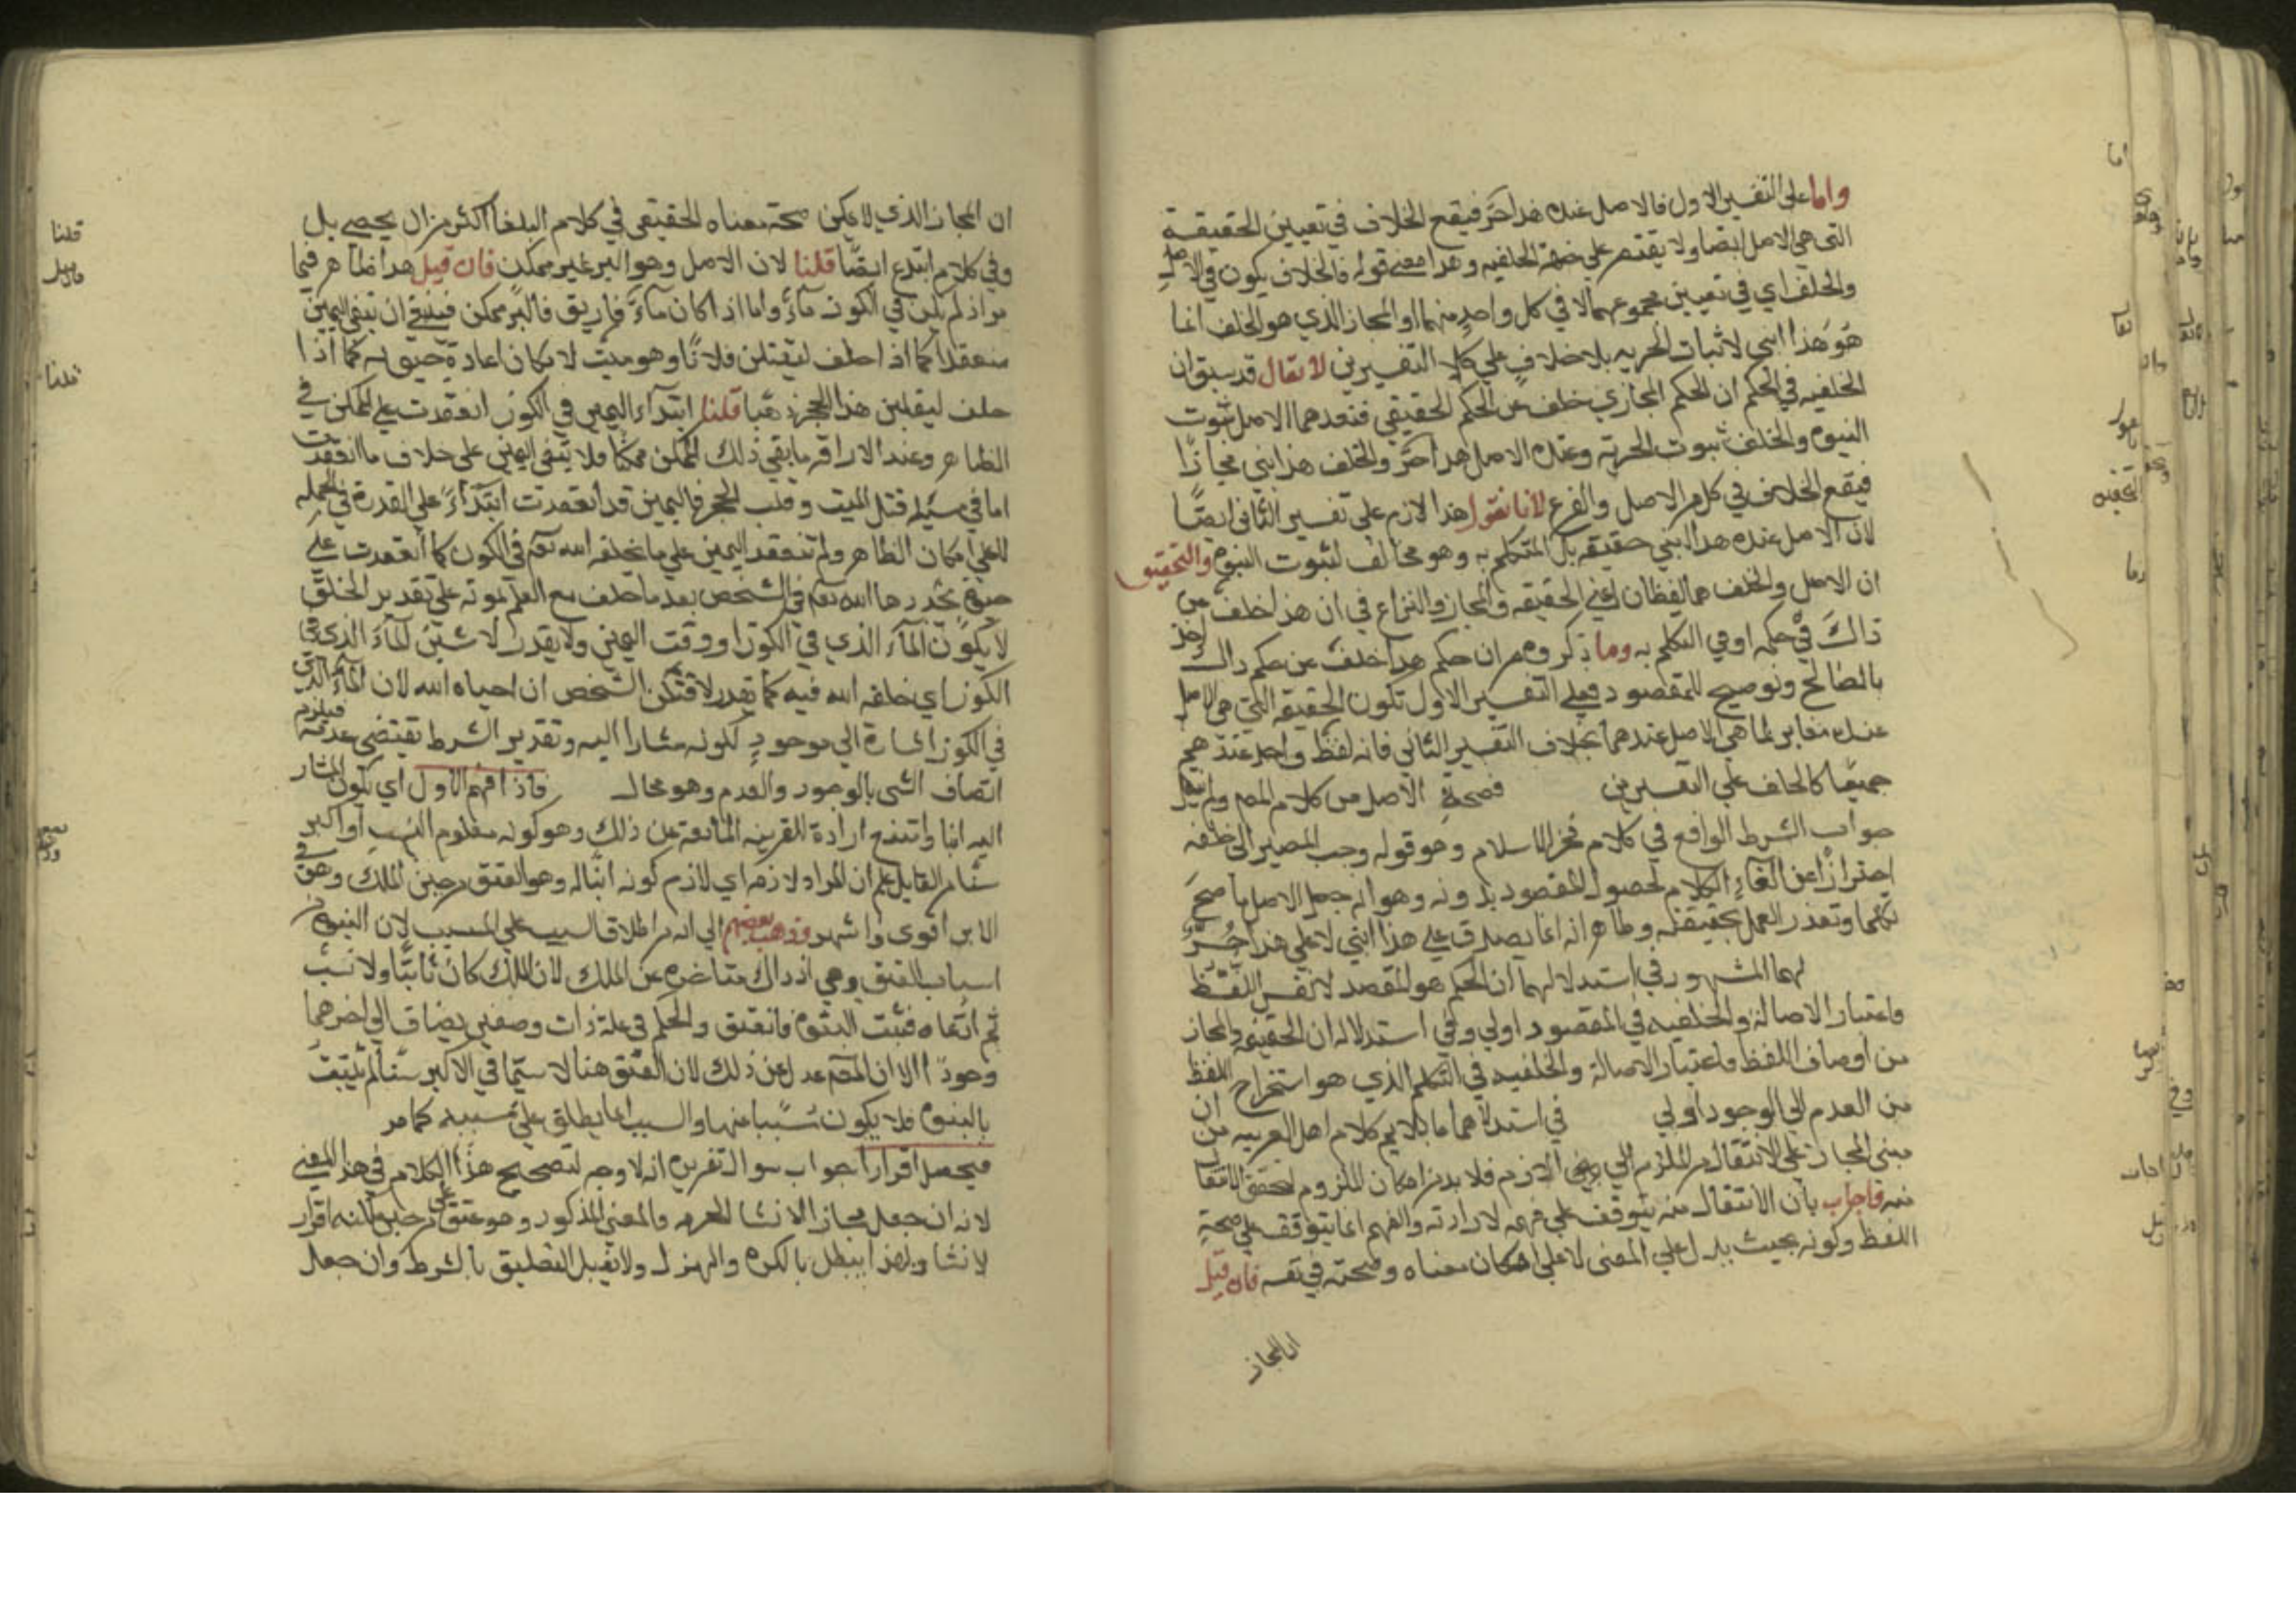 واما على التفسير الاول فالاصل عنده هذا حر فيقع الخلاف في تعيين الحقيقة
التي هي الاصل ايضا ولا يقتصر على جهة الخلفيه وهذا معنى قوله فالخلاف يكون في الاصل
والخلف اي في تعيين مجموعهما لا في كل واحد منهما اذ المجاز الذي هو الخلف انما
هو هذا ابني لاثبات الحريه بلا خلاف على كلا التفسيرين لا يقال قد سبق ان
الخلفيه في الحكم ان الحكم المجازي خلف عن الحكم الحقيقي فعندهما الاصل ثبوت
البنوه والخلف ثبوت الحرية وعنده الاصل هذا حر والخلف هذا ابني مجازا
فيقع الخلاف في كل من الاصل والفرع لانا نقول هذا لازم على تفسير الثاني ايضا
لان الاصل عنده هذا ابني حقيقه بل المتكلم به وهو مخالف لثبوت البنوه والتحقيق
ان الاصل والخلف هما لفظان اعني الحقيقه والمجاز والنزاع في ان هذا خلف من
ذاك في حكمه او في التكلم به وما ذكروه من ان حكم هذا خلف عن حكم ذاك
بالصالح وتوضيح للمقصود فعلى التفسير الاول تكون الحقيقة التي هي الاصل
عنده مغاير لما هي الاصل عندهما بخلاف التفسير الثاني فانه لفظ واحد عندهم
جميعا كالخلف على التفسيرين فصحة الاصل من كلام المصـ
جواب الشرط الواقع في كلام فخر الاسلام وهو قوله وجب المصير الى خلفه
احترازا عن الغاء الكلام لحصول المقصود بدونه وهو انه جعل الاصل ما صح
تكلما وتعذر العمل بحقيقته وظاهر انه انما يصدق على هذا ابني لا على هذا حر
لهما المشهور في استدلالهما ان الحكم هو المقصد لا نفس اللفظ
واعتبار الاصالة والخلفيه في المقصود اولى وفي استدلاله ان الحقيقه والمجاز
من اوصاف اللفظ فاعتبار الاصالة والخلفيه في التكلم الذي هو استخراج اللفظ
من العدم الى الوجود اولى في استدلالهما ما يلايم كلام اهل العربيه من ان
مبنى المجاز على الانتقال من الملزوم الى اللازم فلا بد من امكان الملزوم لتحقق الانتقال
منه فاجاب بان الانتقال منه يتوقف على فهمه لا ارادته والفهم انما يتوقف على صحة
اللفظ وكونه بحيث يدل على المعنى لا على امكان معناه وصحته في نفسه فان قيل
ان المجاز
ان المجاز الذي لا يمكن صحة معناه الحقيقي في كلام البلغا اكثر من ان يحصى بل
وفي كلام ابتدع ايضا قلنا لان الاصل وهو البر غير ممكن فان قيل هذا ظاهر فيما
اذا لم يكن في الكوز ماء واما اذا كان ماء فاريق فالبر ممكن فينبغي ان تبقى اليمين
منعقدة كما اذا حلف ليقتلن فلانا وهو ميت لامكان اعادة حيوته كما اذا
حلف ليقلبن هذا الحجر ذهبا قلنا ابتداء اليمين في الكوز انعقدت على الممكن في
الظاهر وعند الاراقه ما بقي ذلك الممكن ممكنا فلا يبقى اليمين على خلاف ما انعقدت
اما في مسئلة قتل الميت وقلب الحجر فاليمين قد انعقدت ابتداء على القدرة في الجملة
لا على امكان الظاهر ولم تنعقد اليمين على ما يخلقه الله تعالى في الكوز كما انعقدت على
حيوة يجددها الله تعالى في الشخص بعد ما حلف مع العلم بموته على تقدير الخلق
لا يكون الماء الذي في الكوز او وقت اليمين ولا يقدر لاشربن الماء الذي في
الكوز اي خلقه الله فيه كما يقدر لاقتلن الشخص ان احياه الله لان الماء الذي
في الكوز اشارة الى موجود لكونه مشارا اليه وتقدير الشرط يقتضي عدمه فيلزم
اتصاف الشي بالوجود والعدم وهو محال فاذا فهم الاول اي يكون المشار
اليه ابنا وامتنع ارادة للقرينه المانعة عن ذلك وهو كونه معلوم النسب او اكبر
سنا من القايل علم ان المراد لازمه اي لازم كونه ابنا له وهو العتق من حين الملك وهو في
الابن اقوى واشهر وذهب بعضهم الى انه من اطلاق السبب على المسبب لان البنوة من
اسباب العتق وهي اذ ذاك متاخره عن الملك لان الملك كان ثابتا ولا نسب
ثم ادعاه فثبت البنوه فانعتق والحكم في علة ذات وصفين يضاف الى اخرهما
وجودا الا ان المصـ عدل عن ذلك لان العتق هنا لا سيما في الاكبر سنا لم يثبت
بالبنوه فلا يكون مسببا عنها والسبب انما يطلق على مسببه كما مر
فيجعل اقرارا جواب سوال تقريره انه لا وجه لتصحيح هذا الكلام في هذا المعنى
لانه ان جعل مجازا لانشا الحريه والمعنى المذكور وهو عتق على من حين ملكته اقرار
لا نشا ولهذا يبطل بالكره والهزل ولا يقبل التعليق بالشرط وان جعل
قلنا
فان قيل
قلنا